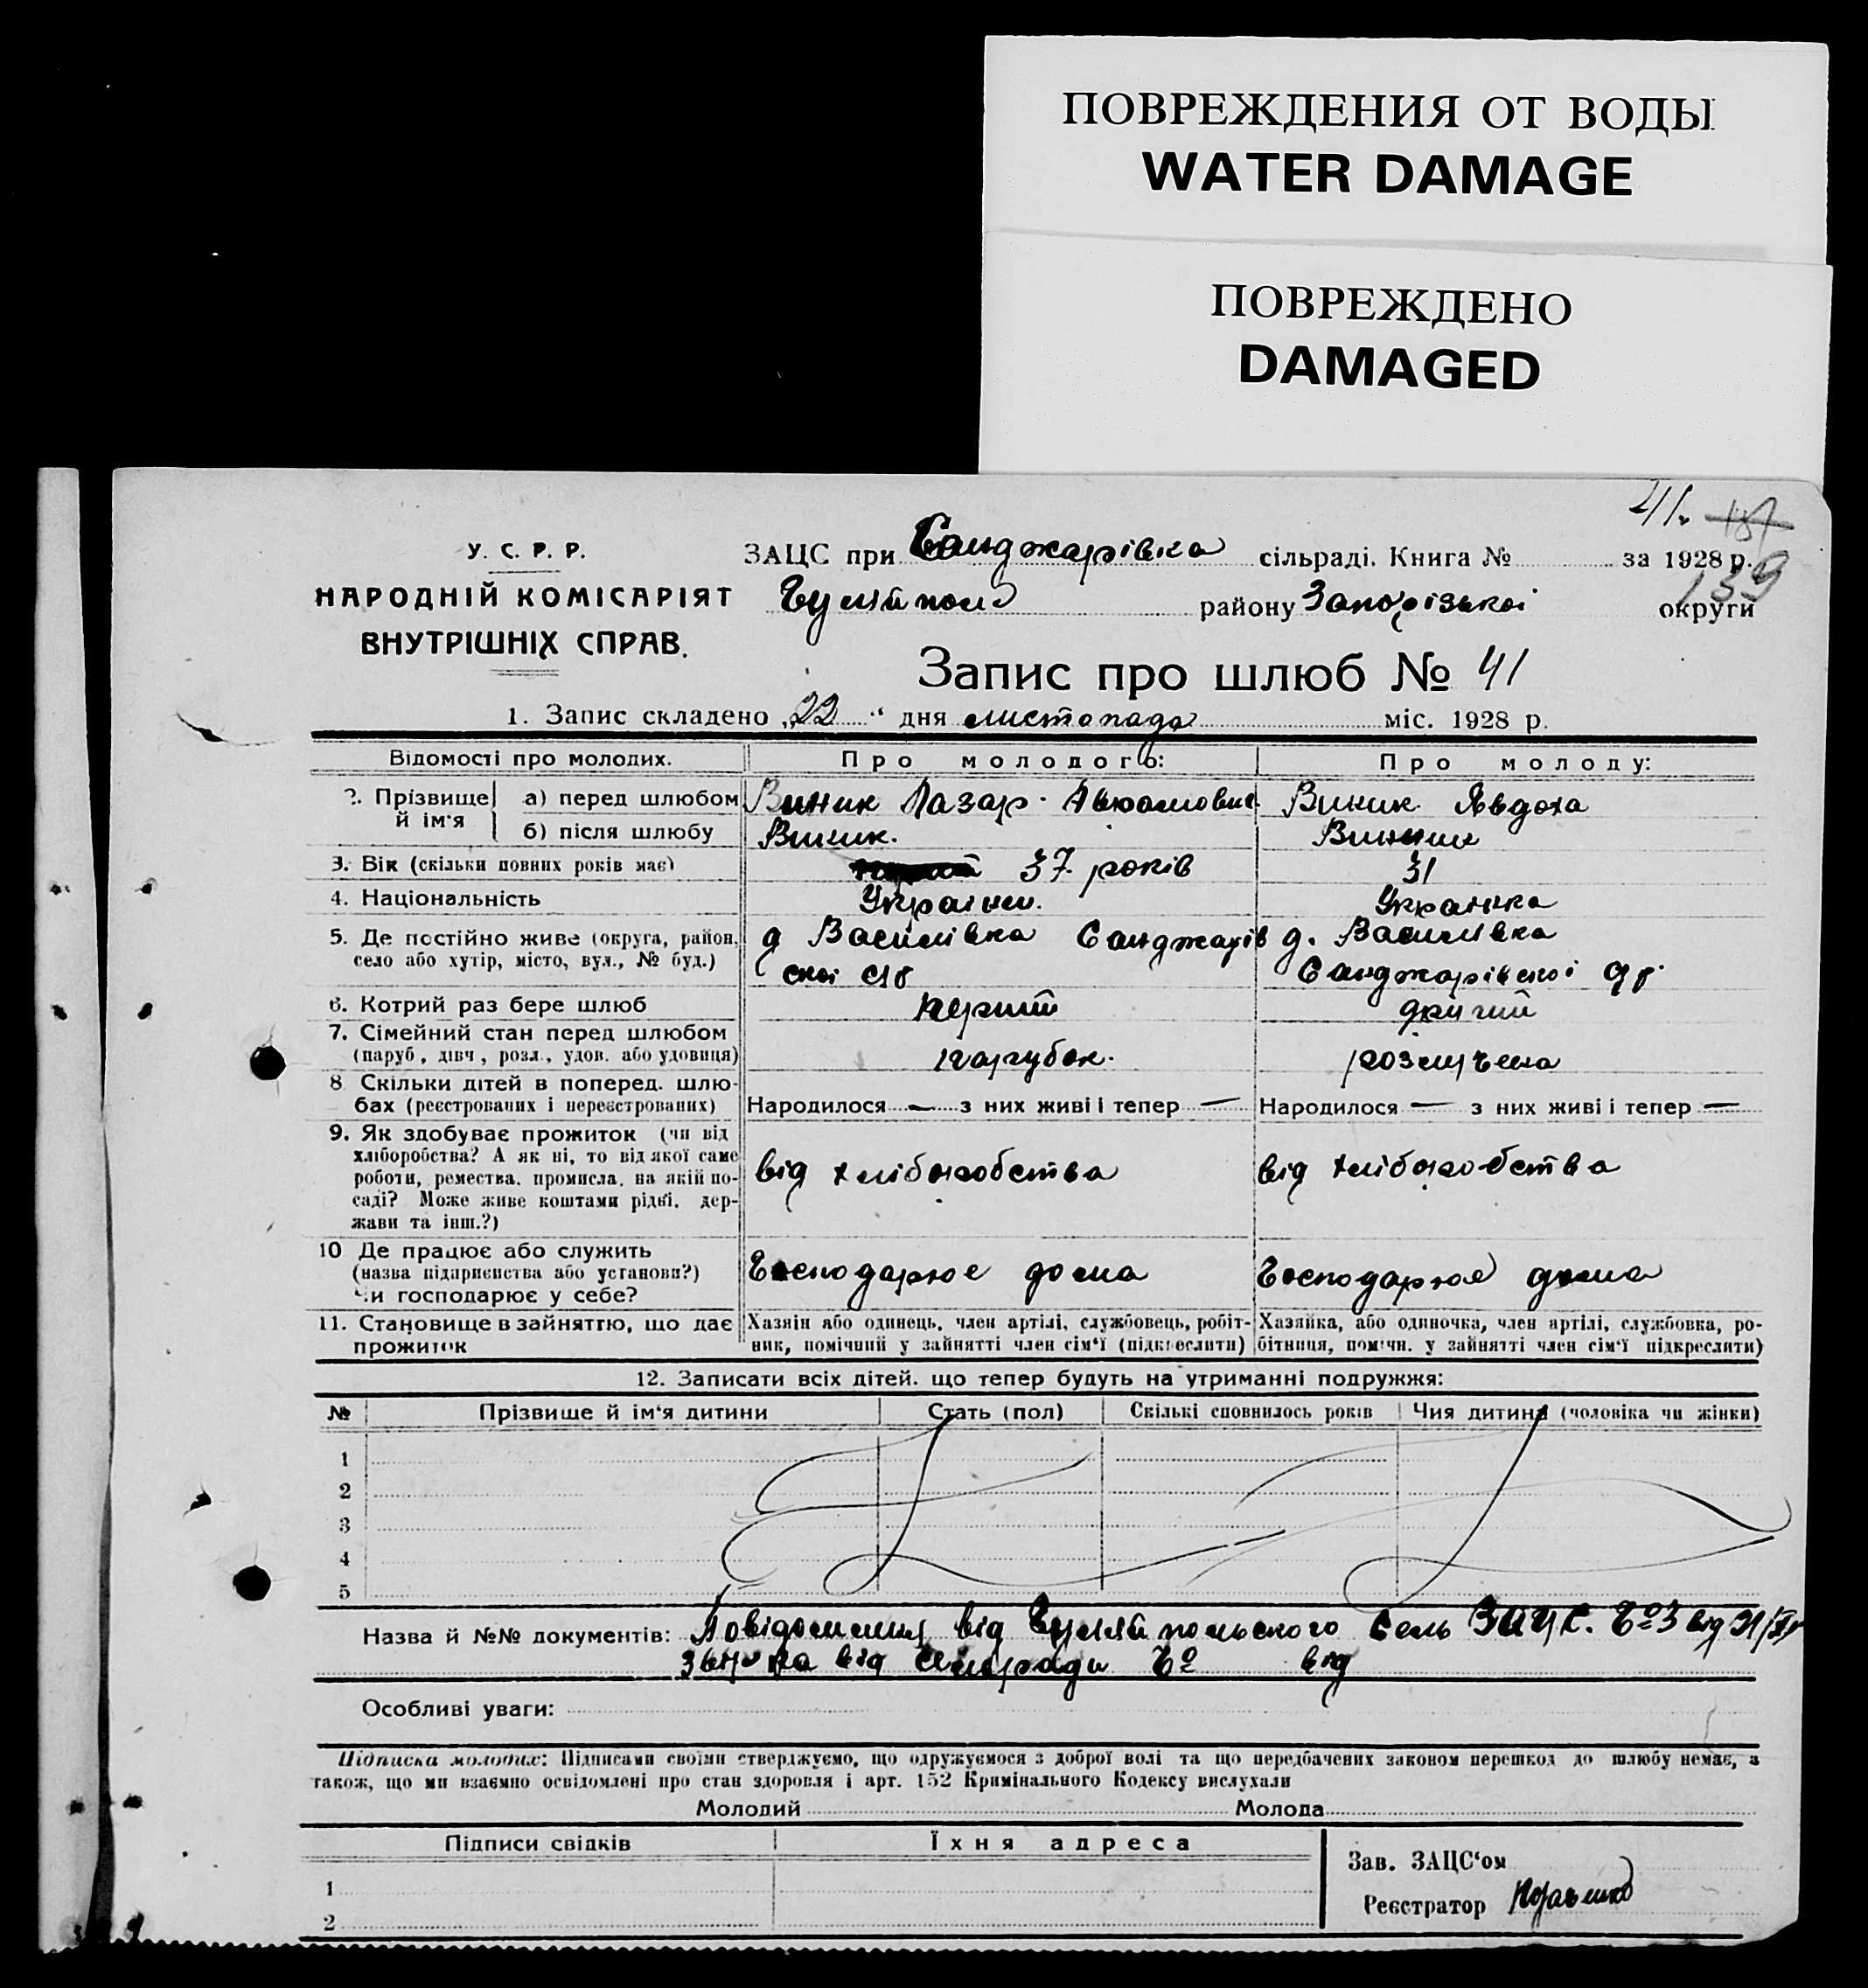 ПОВРЕЖДЕНИЯ ОТ ВОДЫ
WATER DAMAGE
ПОВРЕЖДЕНО
DAMAGED
41. 137
139
У. С. Р. Р.
НАРОДНІЙ КОМІСАРІЯТ
ВНУТРІШНІХ СПРАВ.
ЗАЦС при Санджарівка сільраді. Книга № за 1928 р.
Гуляйполе району Запорізької округи
Запис про шлюб № 41
1. Запис складено „22" дня листопада міс. 1928 р.
Відомості про молодих. Про молодого: Про молоду:
2. Прізвище й ім'я а) перед шлюбом Виник Лазар Виник Явдоха
б) після шлюбу Виник. Виник
3. Вік (скільки повних років має) 37 років 31
4. Національність Українец. Українка
5. Де постійно живе (округа, район, д Василівка Санджарів д. Василівка
село або хутір, місто, вул., № буд.) скої С/р Санджарівскої С/р
6. Котрий раз бере шлюб перший другий
7. Сімейний стан перед шлюбом
(паруб., дівч., розл., удов. або удовиця) парубок. розлучена
8. Скільки дітей в поперед. шлю-
бах (реєстрованих і нереєстрованих) Народилося — з них живі і тепер — Народилося — з них живі і тепер —
9. Як здобуває прожиток (чи від
хліборобства? А як ні, то від якої саме
роботи, ремества, промисла, на якій по- від хліборобства від хліборобства
саді? Може живе коштами рідні, дер-
жави та інш.?)
10 Де працює або служить
(назва підприєнства або установи?) Господарює дома Господарює дома
Чи господарює у себе?
11. Становище в зайняттю, що дає Хазяін або одинець, член артілі, службовець, робіт- Хазяйка, або одиночка, член артілі, службовка, ро-
прожиток ник, помічний у зайнятті член сім'ї (підкреслити) бітниця, помічн. у зайнятті член сім'ї підкреслити)
12. Записати всіх дітей, що тепер будуть на утриманні подружжя:
№ Прізвище й ім'я дитини Стать (пол) Скількі сповнилось років Чия дитина (чоловіка чи жінки)
1
2
3
4
5
Назва й №№ документів: Повідомлення від Гуляйпольского Сель ЗАЦС. №3 від
від Сільради № від
Особливі уваги:
Підписка молодих: Підписами своїми стверджуємо, що одружуємося з доброї волі та що передбачених законом перешкод до шлюбу немає, а
також, що ми взаємно освідомлені про стан здоровля і арт. 152 Кримінального Кодексу вислухали
Молодий Молода
Підписи свідків Їхня адреса
1
2
Зав. ЗАЦС'ом
Реєстратор